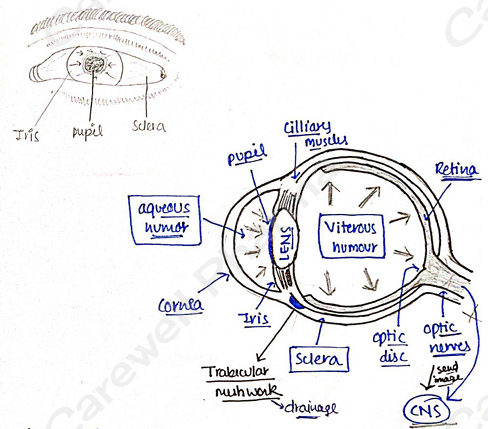 Iris
pupil
Sclera
Cilliary
muscles
pupil
Retina
aqueous
humor
LENS
Viterous
humour
Cornea
Iris
Sclera
optic
disc
optic
nerves
send
image
CNS
Trabicular
meshwork
drainage